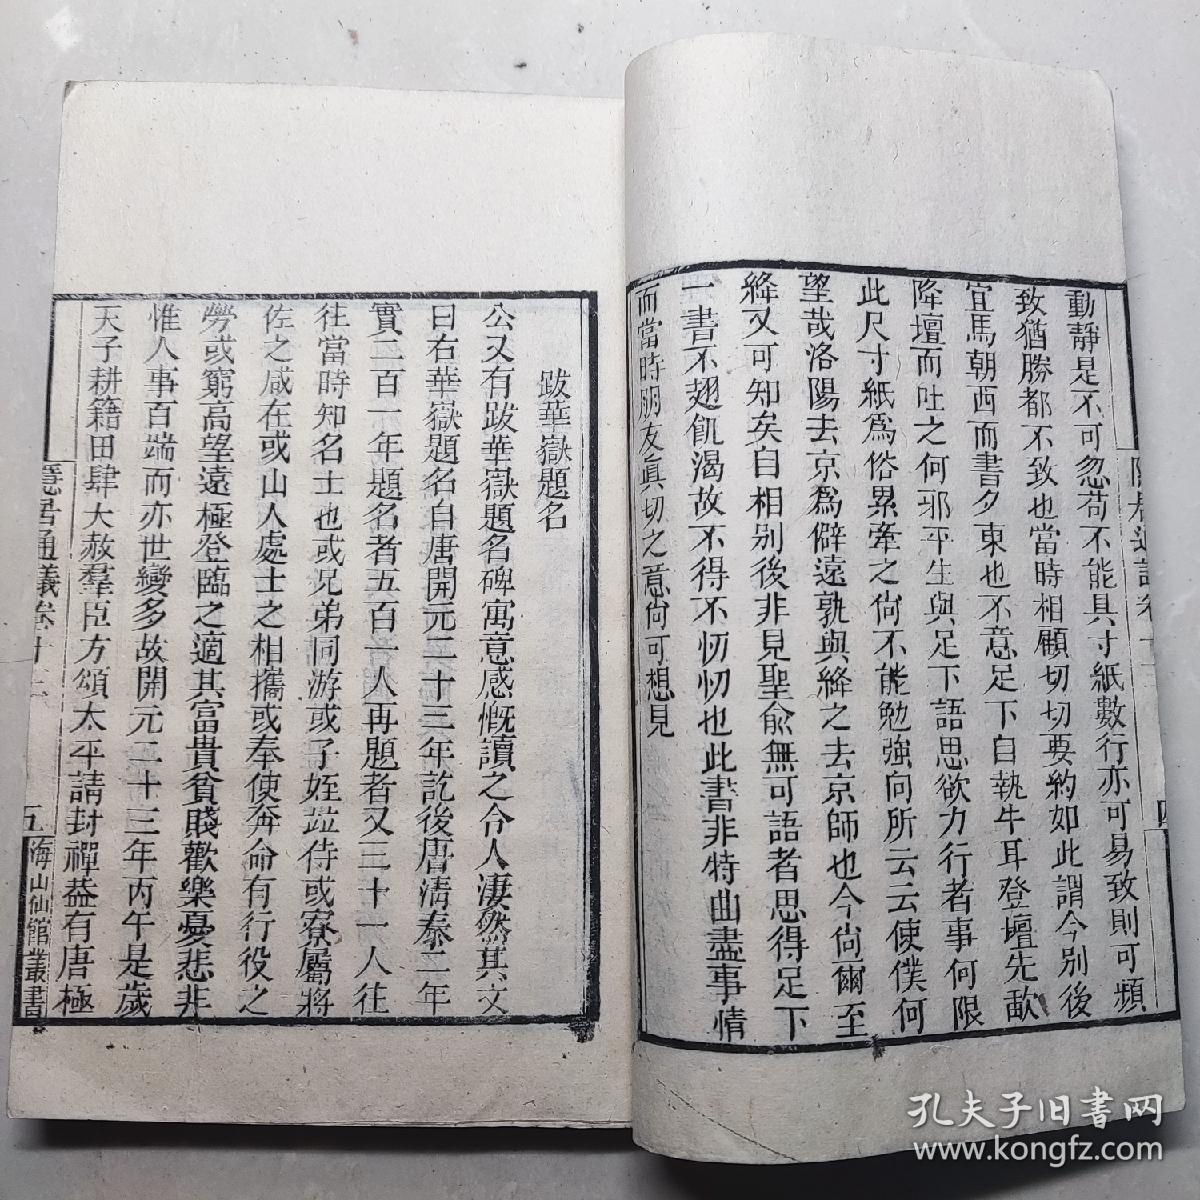 動靜是不可忽苟不能具寸紙數行亦可易致則可頻
致猶勝都不致也當時相顧切切要約如此謂今別後
宜馬朝西而書夕東也不意足下自執牛耳登壇先歃
降壇而吐之何邪平生與足下語思欲力行者事何限
此尺寸紙爲俗累牽之尙不能勉強向所云云使僕何
望哉洛陽去京爲僻遠孰與絳之去京師也今尙爾至
絳又可知矣自相別後非見聖兪無可語者思得足下
一書不翅飢渴故不得不忉忉也此書非特曲盡事情
而當時朋友眞切之意尙可想見
四
跋華嶽題名
公又有跋華嶽題名碑寓意感慨讀之令人淒然其文
曰右華嶽題名自唐開元二十三年訖後唐淸泰二年
實二百一年題名者五百一人再題者又三十一人往
往當時知名士也或兄弟同游或子姪竝侍或寮屬將
佐之咸在或山人處士之相攜或奉使奔命有行役之
勞或窮高望遠極登臨之適其富貴貧賤歡樂憂悲非
惟人事百端而亦世變多故開元二十三年丙午是歲
天子耕籍田肆大赦羣臣方頌太平請封禪葢有唐極
隱居通議卷十三
五
海山仙館叢書
孔夫子旧书网
www.kongfz.com